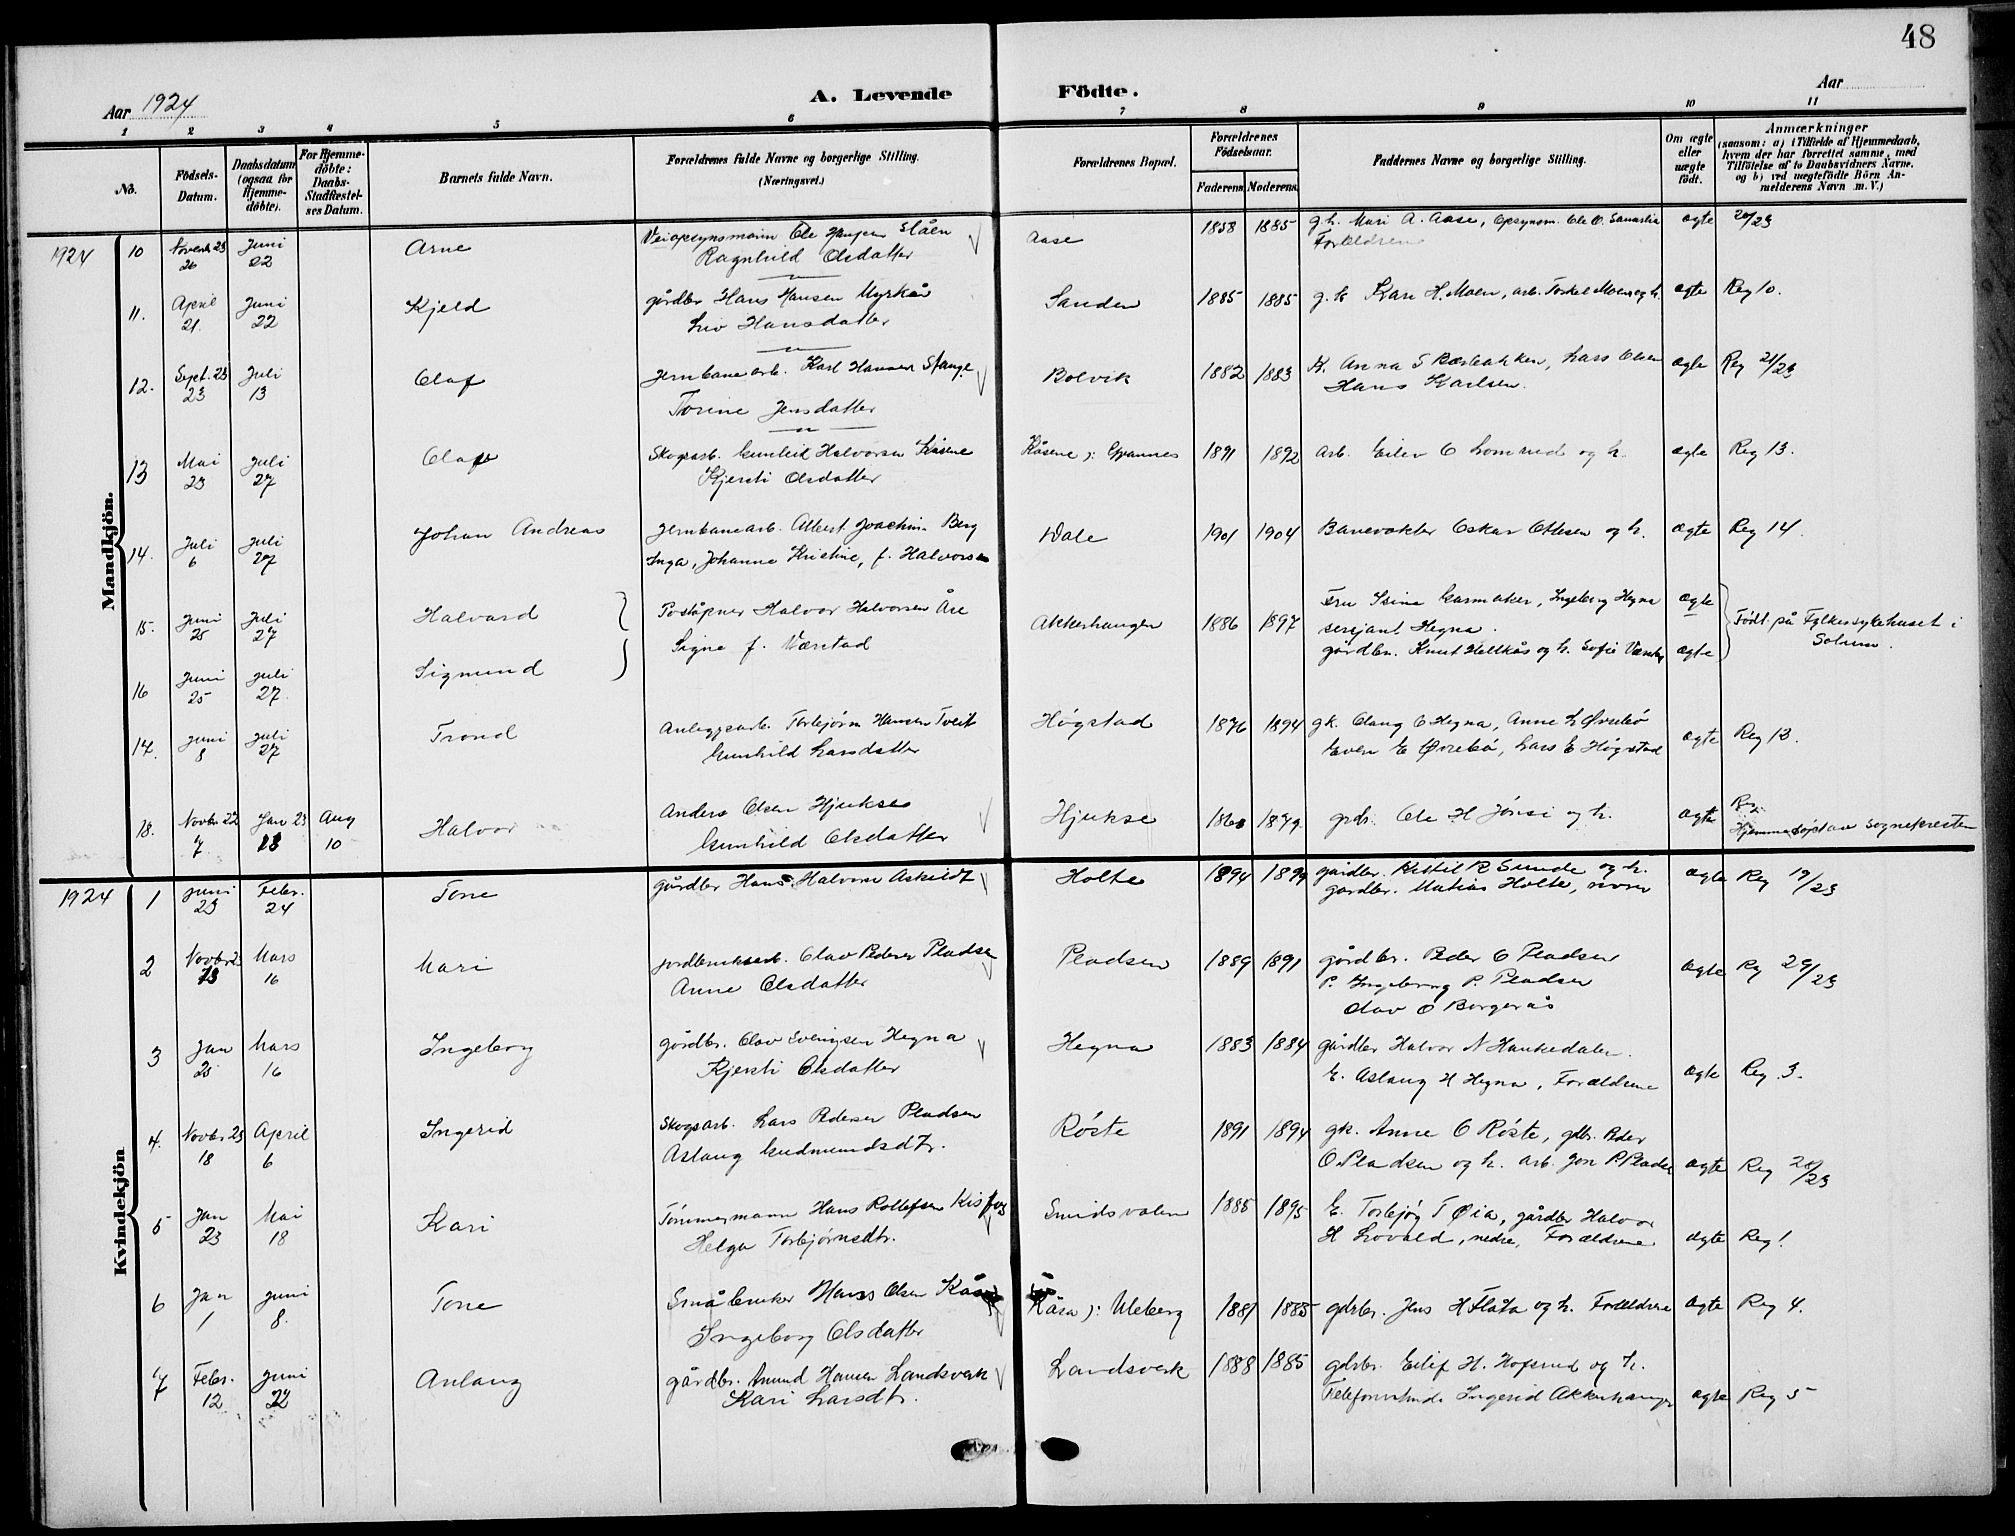 48
Aar 1924
A. Levende Födte.
Aar
1 2 3 4 5 6 7 8 9 10 11
No.
Födsels-Datum.
Daabsdatum (ogsaa for Hjemme-döbte).
For Hjemme-döbte: Daabs-Stadfæstel-ses Datum.
Barnets fulde Navn.
Forældrenes fulde Navne og borgerlige Stilling.
(Næringsvei.)
Forældrenes Bopæl.
Forældrenes Födselsaar.
Faderens Moderens.
Faddernes Navne og borgerlige Stilling.
Om ægte eller uægte födt.
Anmærkninger
(saasom: a) i Tilfælde af Hjemmedaab, hvem der har forrettet samme, med Tilföielse af to Daabsvidners Navne, og b) ved uægtefödte Börn An-melderens Navn m. V.)
Mandkjön.
1924 10 Novemb 23 Juni Arne Veiopsynsmann Ole Hansen Slåen Aase 1858 1885 g.k. Mari A. Aase, Opsynsm. Ole O. ægte 20/23
26 22 Ragnhild Olsdatter Forældrene
11. April Juni Kjeld gårdbr Hans Hansen Myrkås Sanden 1885 1885 g.k. Kari H. Moen, arb. Torkel Moen og h. ægte Reg 10.
21. 22 Liv Hansdatter
12. Sept. 23 Juli Olaf Jernbanearb. Karl Hansen Stange Bolvik 1882 1883 K. Anna Lars Olsen ægte Reg 21/23
23 13 Torine Jensdatter Hans Karlsen.
13 Mai Juli Olaf Skogsarb. Gunleik Halvorsen Kåsene Kåsene ): Grannes 1891 1892 arb. Eilev O Lomrud og h. ægte Reg 13.
23 27 Kjersti Olsdatter
14. Juli Juli Johan Andreas Jernbanearb. Albert Joachim Berg Dale 1901 1904 Banevokter Oskar Ottesen og h. ægte Reg 14.
6 27 Inga, Johanne Kristine, f. Halvorsen
15. Juni Juli Halvard Poståpner Halvor Halvorsen Åse Akkerhaugen 1886 1897 Fru Stine Garmaker, Ingeborg Hegna ægte Født på Fylkessykehuset i
25 27 Signe f. Værstad sersjant Hegna. Solum.
16 Juni Juli Sigmund gårdbr. Knut Heltkås og h. Sofie ægte
25 27
17. Juni Juli Trond Anleggsarb. Torbjørn Hansen Tveit Høgstad 1876 1894 gk. Olaug O Hegna, Anne L Øvrebø ægte Reg 12.
8 27 Gunhild Larsdatter Even E Øvrebø, Lars E Høgstad
18. Novbr 22 Jan 23 Aug Halvor Anders Olsen Hjukse Hjukse 1868 1879 grdr. Ole H Jönsi og h. ægte Reg.
7 28 10 Gunhild Olsdatter Hjemmedøpt av Sognepresten
Kvindekjön
1924 1 Juni Febr. Tone gårdbr Hans Halvorsen Askildt Holte 1894 1899 gårdbr. Kittil K Sunde og h. ægte Reg 19/23
23 24 gårdbr. Matias Holte,
2 Novbr 23 Mars Mari jordbruksarb. Olav Pedersen Pladsen Pladsen 1889 1891 gårdbr. Peder O Pladsen ægte Reg 29/23
13 16 Anne Olsdatter P. Ingeborg P. Pladsen
Olav O Borgerås
3 Jan Mars Ingeborg gårdbr. Olav Svenigsen Hegna Hegna 1883 1884 gårdbr Halvor N Haukedalen.
25 16 Kjersti Olsdatter E. Aslaug H Hegna, Forældrene ægte Reg 3.
4. Novbr 23 April Ingerid Skogsarb. Lars Pedersen Pladsen Röste 1891 1894 gk. Anne O Röste, gdbr. Peder
18 6 Aslaug Gudmundsdt. O. Pladsen og h. arb. Jon P. Pladsen ægte Reg 28/23
5 Jan Mai Kari Tömmermann Hans Rollefsen Kisfoss Smidsvalen 1885 1895 E. Torbjög T Øia, gårdbr Halvor
23 18 Helga Torbjørnsdtr. H Lovald, nedre, Forældrene ægte Reg 1
6 Jan Juni Tone Småbruker Hans Olsen Kåsa Kåsa ): Uleberg 1881 1885 gdrbr. Jens H Flåta og h. Forældrene ægte Reg 4.
1 8. Ingeborg Olsdatter
7 Febr. Juni Anlaug gårdbr. Amund Hansen Landsverk Landsverk 1888 1885 gdrbr. Eilif H. Hofsrud og h.
12 22 Kari Larsdtr. Ingerid Akkerhaugen ægte Reg 5